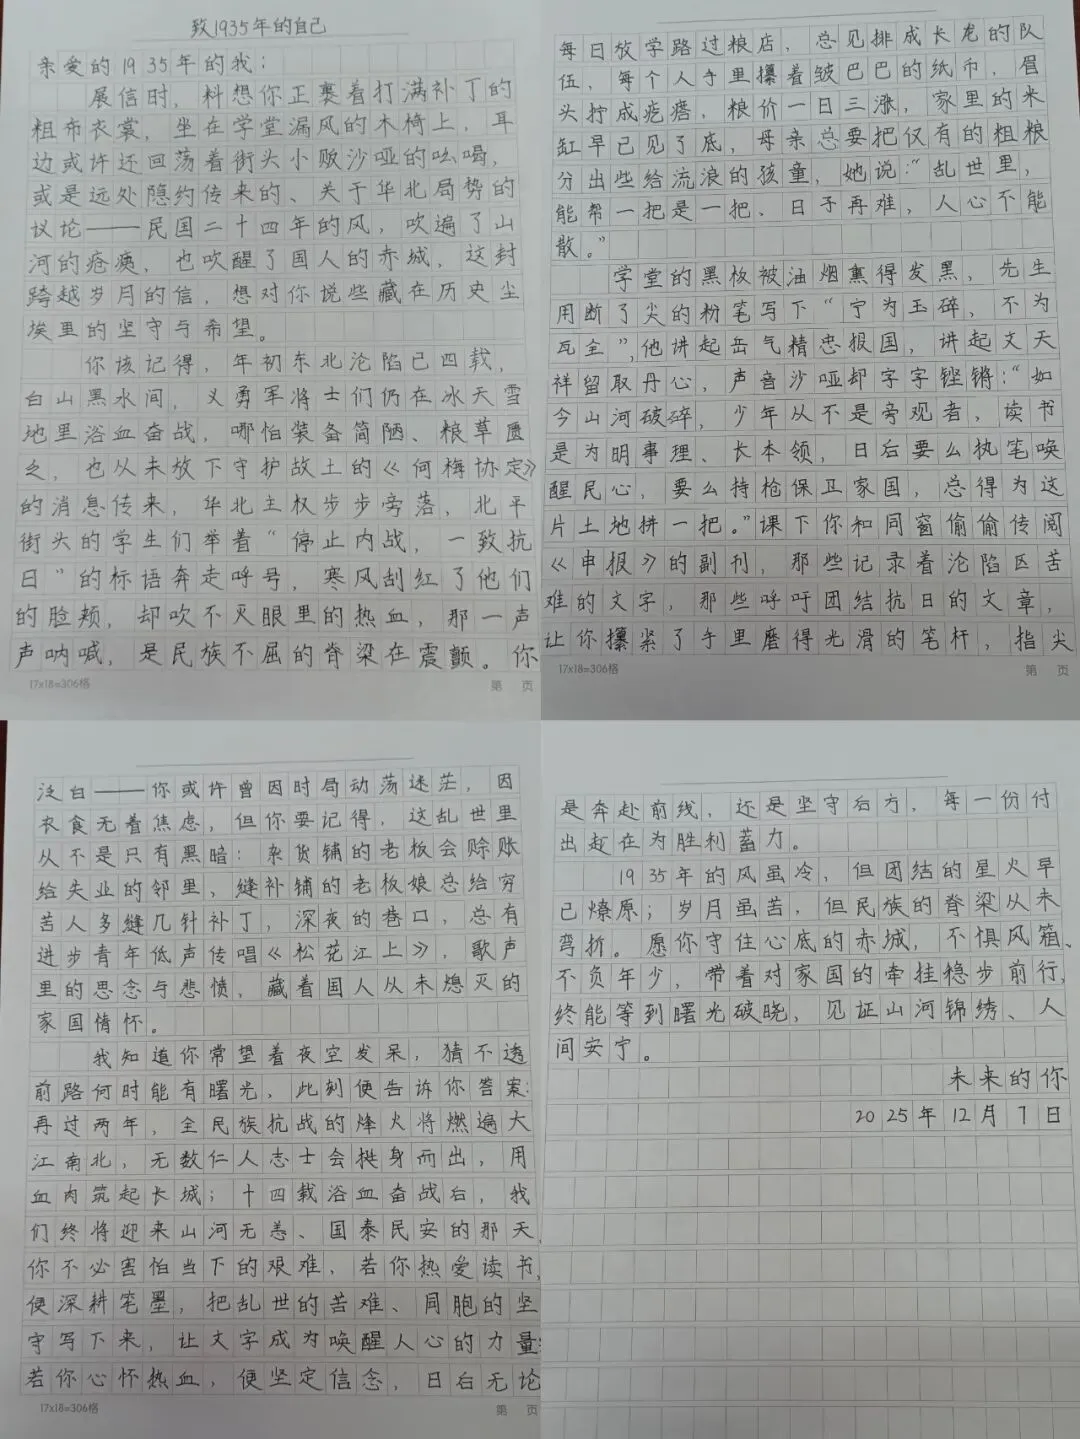 致1935年的自己
亲爱的1935年的我：
展信时，料想你正裹着打满补丁的
粗布衣裳，坐在学堂漏风的木椅上，耳
边或许还回荡着街头小贩沙哑的吆喝，
或是远处隐约传来的、关于华北局势的
议论——民国二十四年的风，吹遍了山
河的疮痍，也吹醒了国人的赤城，这封
跨越岁月的信，想对你说些藏在历史尘
埃里的坚守与希望。
你该记得，年初东北沦陷已四载，
白山黑水间，义勇军将士们仍在冰天雪
地里浴血奋战，哪怕装备简陋、粮草匮
乏，也从未放下守护故土的《何梅协定》
的消息传来，华北主权步步旁落，北平
街头的学生们举着“停止内战，一致抗
日”的标语奔走呼号，寒风刮红了他们
的脸颊，却吹不灭眼里的热血，那一声
声呐喊，是民族不屈的脊梁在震颤。你
17x18=306格
第 页
每日放学路过粮店，总见排成长龙的队
伍，每个人手里攥着皱巴巴的纸币，眉
头拧成疙瘩，粮价一日三涨，家里的米
缸早已见了底，母亲总要把仅有的粗粮
分出些给流浪的孩童，她说：“乱世里，
能帮一把是一把、日子再难，人心不能
散。”
学堂的黑板被油烟熏得发黑，先生
用断了尖的粉笔写下“宁为玉碎，不为
瓦全”，他讲起岳气精忠报国，讲起文天
祥留取丹心，声音沙哑却字字铿锵：“如
今山河破碎，少年从不是旁观者，读书
是为明事理、长本领，日后要么执笔唤
醒民心，要么持枪保卫家国，总得为这
片土地拼一把。”课下你和同窗偷偷传阅
《申报》的副刊，那些记录着沦陷区苦
难的文字，那些呼吁团结抗日的文章，
让你攥紧了手里磨得光滑的笔杆，指尖
17x18=306格
第 页
泛白——你或许曾因时局动荡迷茫，因
衣食无着焦虑，但你要记得，这乱世里
从不是只有黑暗：杂货铺的老板会赊账
给失业的邻里，缝补铺的老板娘总给穷
苦人多缝几针补丁，深夜的巷口，总有
进步青年低声传唱《松花江上》，歌声
里的思念与悲愤，藏着国人从未熄灭的
家国情怀。
我知道你常望着夜空发呆，猜不透
前路何时能有曙光，此刻便告诉你答案：
再过两年，全民族抗战的烽火将燃遍大
江南北，无数仁人志士会挺身而出，用
血肉筑起长城；十四载浴血奋战后，我
们终将迎来山河无恙、国泰民安的那天
你不必害怕当下的艰难，若你热爱读书，
便深耕笔墨，把乱世的苦难、同胞的坚
守写下来，让文字成为唤醒人心的力量；
若你心怀热血，便坚定信念，日后无论
17x18=306格
第 页
是奔赴前线，还是坚守后方，每一份付
出赴在为胜利蓄力。
1935年的风虽冷，但团结的星火早
已燎原；岁月虽苦，但民族的脊梁从未
弯折。愿你守住心底的赤城，不惧风箱、
不负年少，带着对家国的牵挂稳步前行，
终能等到曙光破晓，见证山河锦绣、人
间安宁。
未来的你
2025年12月7日